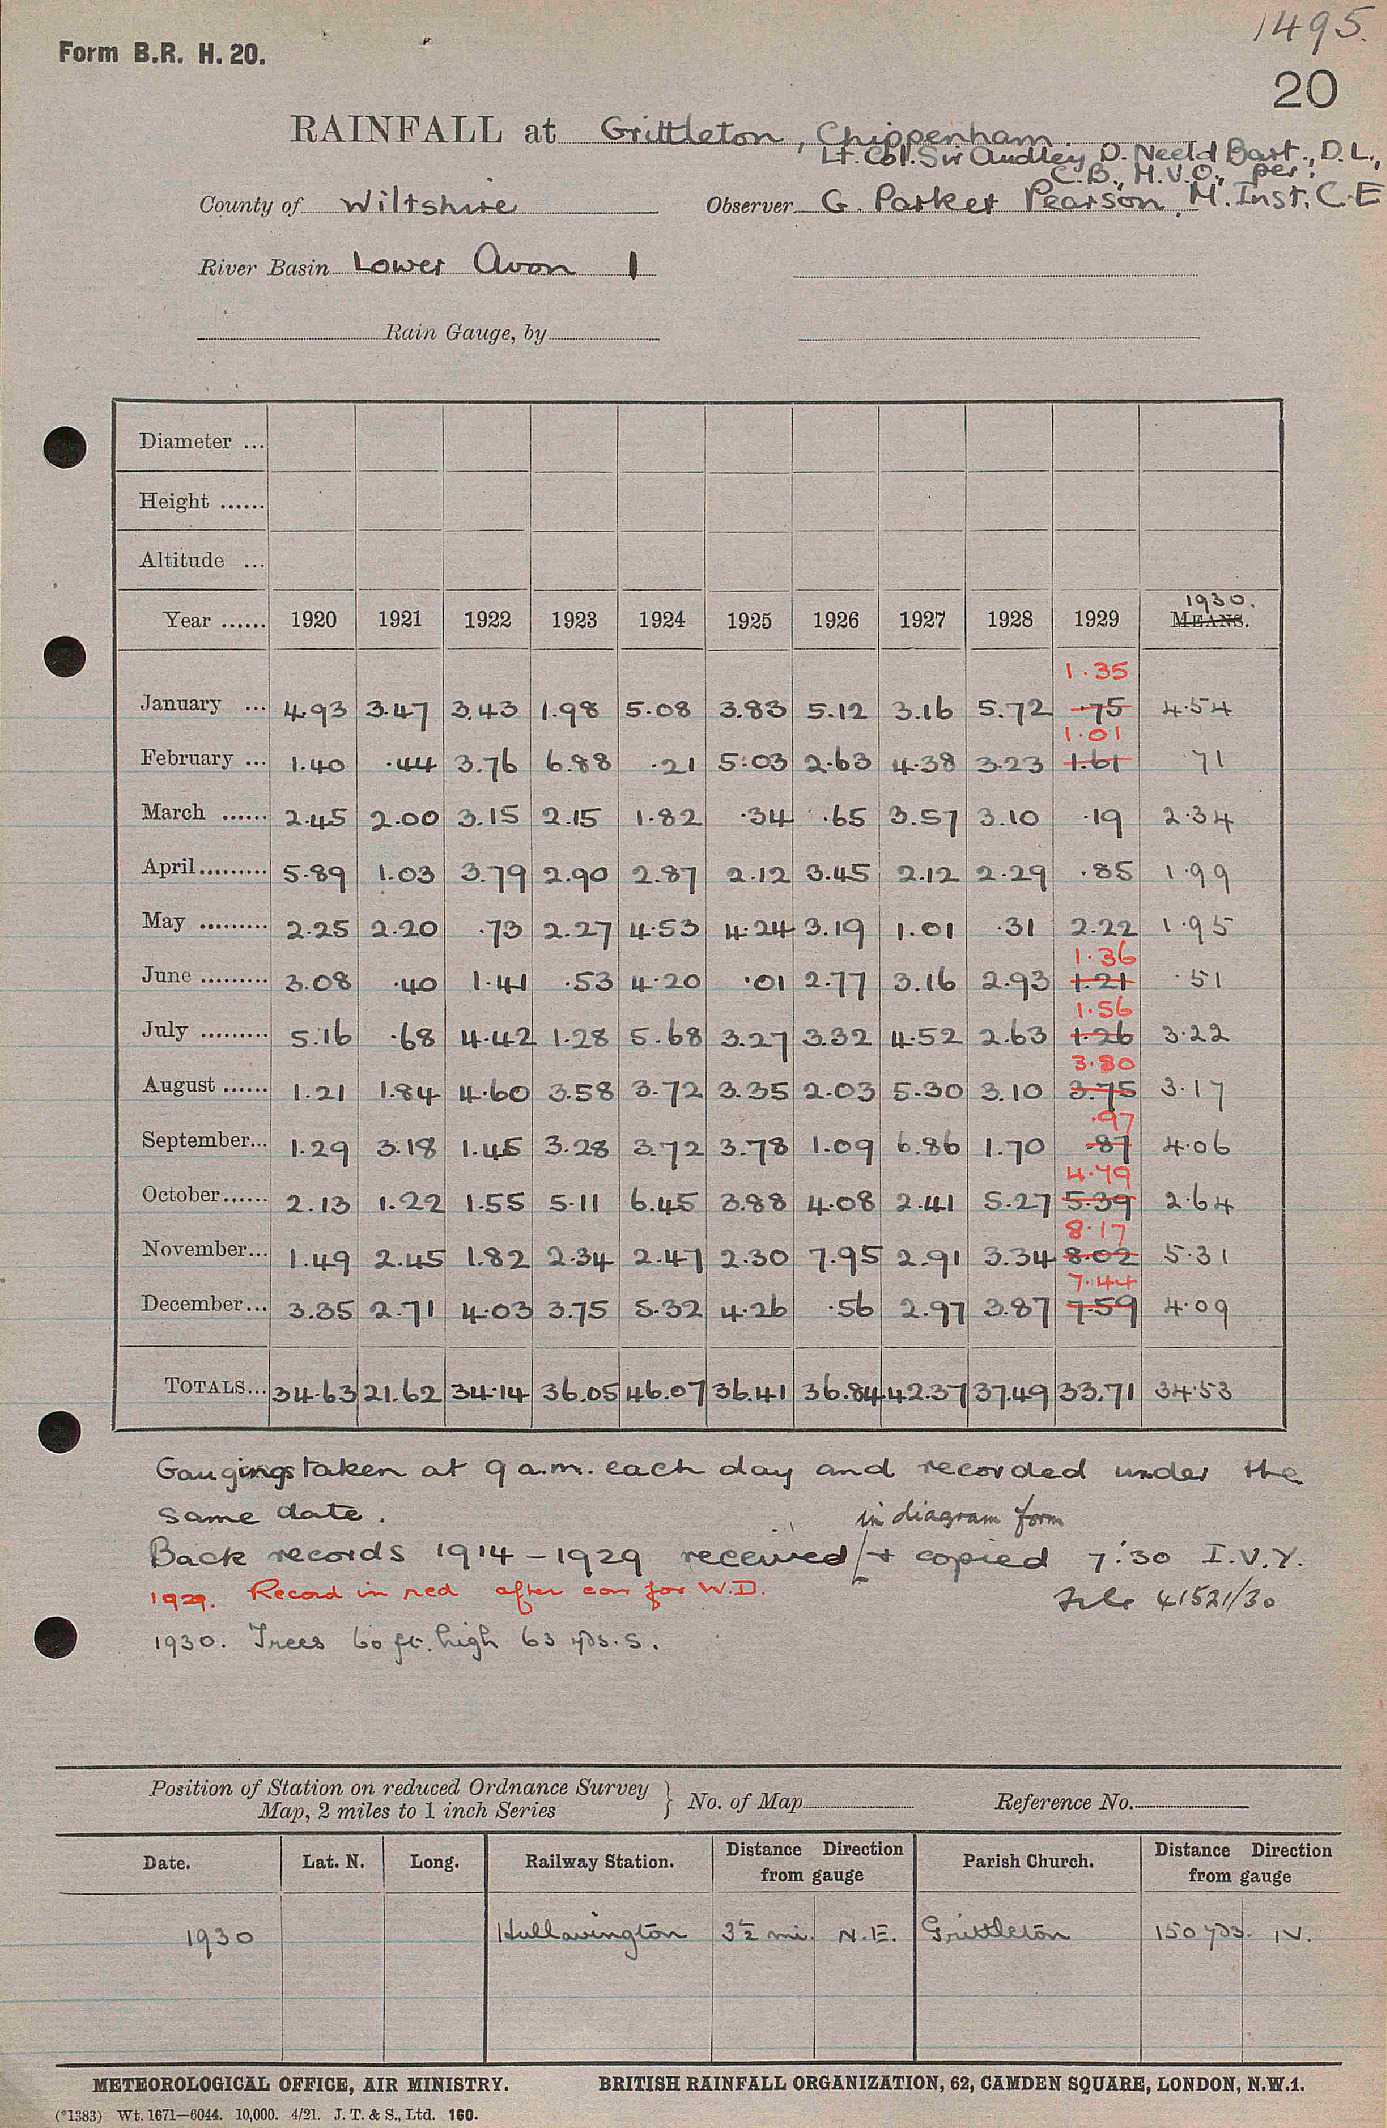 1495.
Form B.R. H. 20.
20
RAINFALL at Grittleton, Chippenham.
Lt. Col. Sir Audley D. Neeld Bart., D.L.,
C.B., M.V.O., per:
County of Wiltshire Observer G. Parker Pearson, M. Inst. C.E
River Basin Lower Avon 1
Rain Gauge, by
Diameter ...
Height ......
Altitude ...
1930.
Year ...... 1920 1921 1922 1923 1924 1925 1926 1927 1928 1929 MEANS.
1.35
January ... 4.93 3.47 3.43 1.98 5.08 3.83 5.12 3.16 5.72 .75 4.54
1.01
February ... 1.40 .44 3.76 6.88 .21 5.03 2.63 4.38 3.23 1.61 71
March ...... 2.45 2.00 3.15 2.15 1.82 .34 .65 3.57 3.10 .19 2.34
April ......... 5.89 1.03 3.79 2.90 2.87 2.12 3.45 2.12 2.29 .85 1.99
May ......... 2.25 2.20 .73 2.27 4.53 4.24 3.19 1.01 .31 2.22 1.95
1.36
June ......... 3.08 .40 1.41 .53 4.20 .01 2.77 3.16 2.93 1.21 .51
1.56
July ......... 5.16 .68 4.42 1.28 5.68 3.27 3.32 4.52 2.63 1.26 3.22
3.80
August ...... 1.21 1.84 4.60 3.58 3.72 3.35 2.03 5.30 3.10 3.75 3.17
.97
September... 1.29 3.18 1.45 3.28 3.72 3.78 1.09 6.86 1.70 .87 4.06
4.79
October...... 2.13 1.22 1.55 5.11 6.45 3.88 4.08 2.41 5.27 5.39 2.64
8.17
November... 1.49 2.45 1.82 2.34 2.47 2.30 7.95 2.91 3.34 8.02 5.31
7.44
December... 3.35 2.71 4.03 3.75 5.32 4.26 .56 2.97 3.87 7.59 4.09
TOTALS... 34.63 21.62 34.14 36.05 46.07 36.41 36.84 42.37 37.49 33.71 34.53
Gaugings taken at 9 a.m. each day and recorded under the
same date.
in diagram form
Back records 1914 - 1929 received + copied 7.'30 I.V.Y.
1929. Record in red after corr for W.D.
File 41521/30
1930. Trees 60 ft. high 63 yds. S.
Position of Station on reduced Ordnance Survey
Map, 2 miles to 1 inch Series } No. of Map Reference No.
Date. Lat. N. Long. Railway Station. Distance Direction from gauge Parish Church. Distance Direction from gauge
1930 Hullavington 3½ mi. N.E. Grittleton 150 yds. N.
METEOROLOGICAL OFFICE, AIR MINISTRY. BRITISH RAINFALL ORGANIZATION, 62, CAMDEN SQUARE, LONDON, N.W.1.
(*1383) Wt. 1671—6044. 10,000. 4/21. J. T. & S., Ltd. 160.